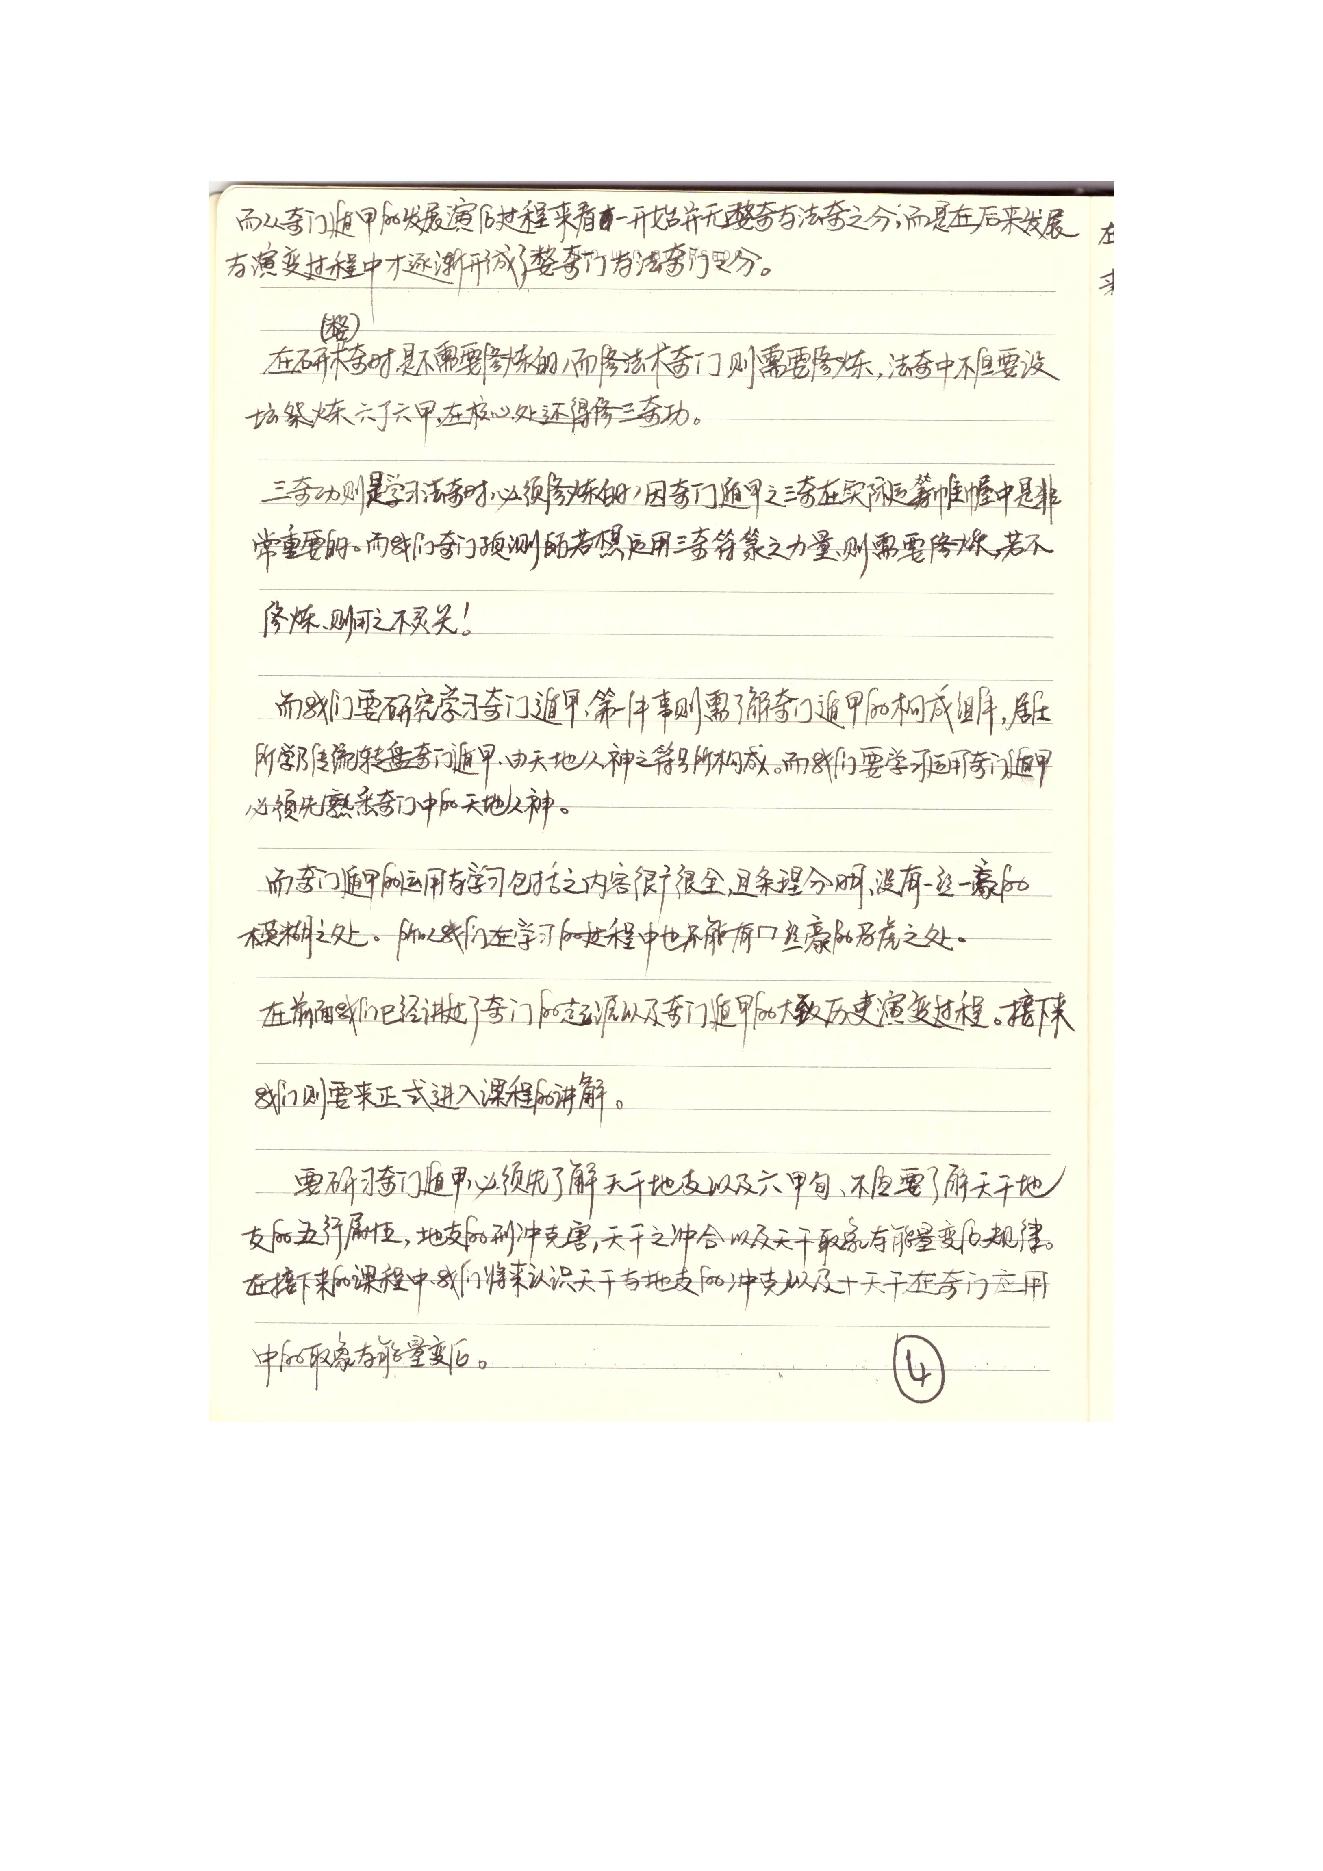 而从奇门遁甲的发展演化过程来看一开始并无数奇与法奇之分;而是在后来发展
与演变过程中才逐渐形成了数奇门与法奇门之分。
(数)
在研术奇时,是不需要修炼的,而修法术奇门则需要修炼,法奇中不但要设
坛祭炼六丁六甲,在核心处还得修三奇功。
三奇功则是学习法奇时,必须修炼的,因奇门遁甲之三奇在实际运筹帷幄中是非
常重要的。而我们奇门预测师若想运用三奇符篆之力量,则需要修炼,若不
修炼、则用之不灵矣!
而我们要研究学习奇门遁甲、第一件事则需了解奇门遁甲的构成组件,
所学传统转盘奇门遁甲、由天地人神之符号所构成。而我们要学习运用奇门遁甲
必须先熟悉奇门中的天地人神。
而奇门遁甲的运用与学习包括之内容很广很全,且条理分明,没有一丝一豪的
模糊之处。所以我们在学习的过程中也不能有丝豪的马虎之处。
在前面我们已经讲过了奇门的起源以及奇门遁甲的大致历史演变过程。接下来
我们则要来正式进入课程的讲解。
要研习奇门遁甲,必须先了解天干地支以及六甲旬、不但要了解天干地
支的五行属性,地支的刑冲克害,天干之冲合以及天干取象与能量变化规律。
在接下来的课程中我们将来认识天干与地支的冲克以及十天干在奇门应用
中的取象与能量变化。
4
在
来